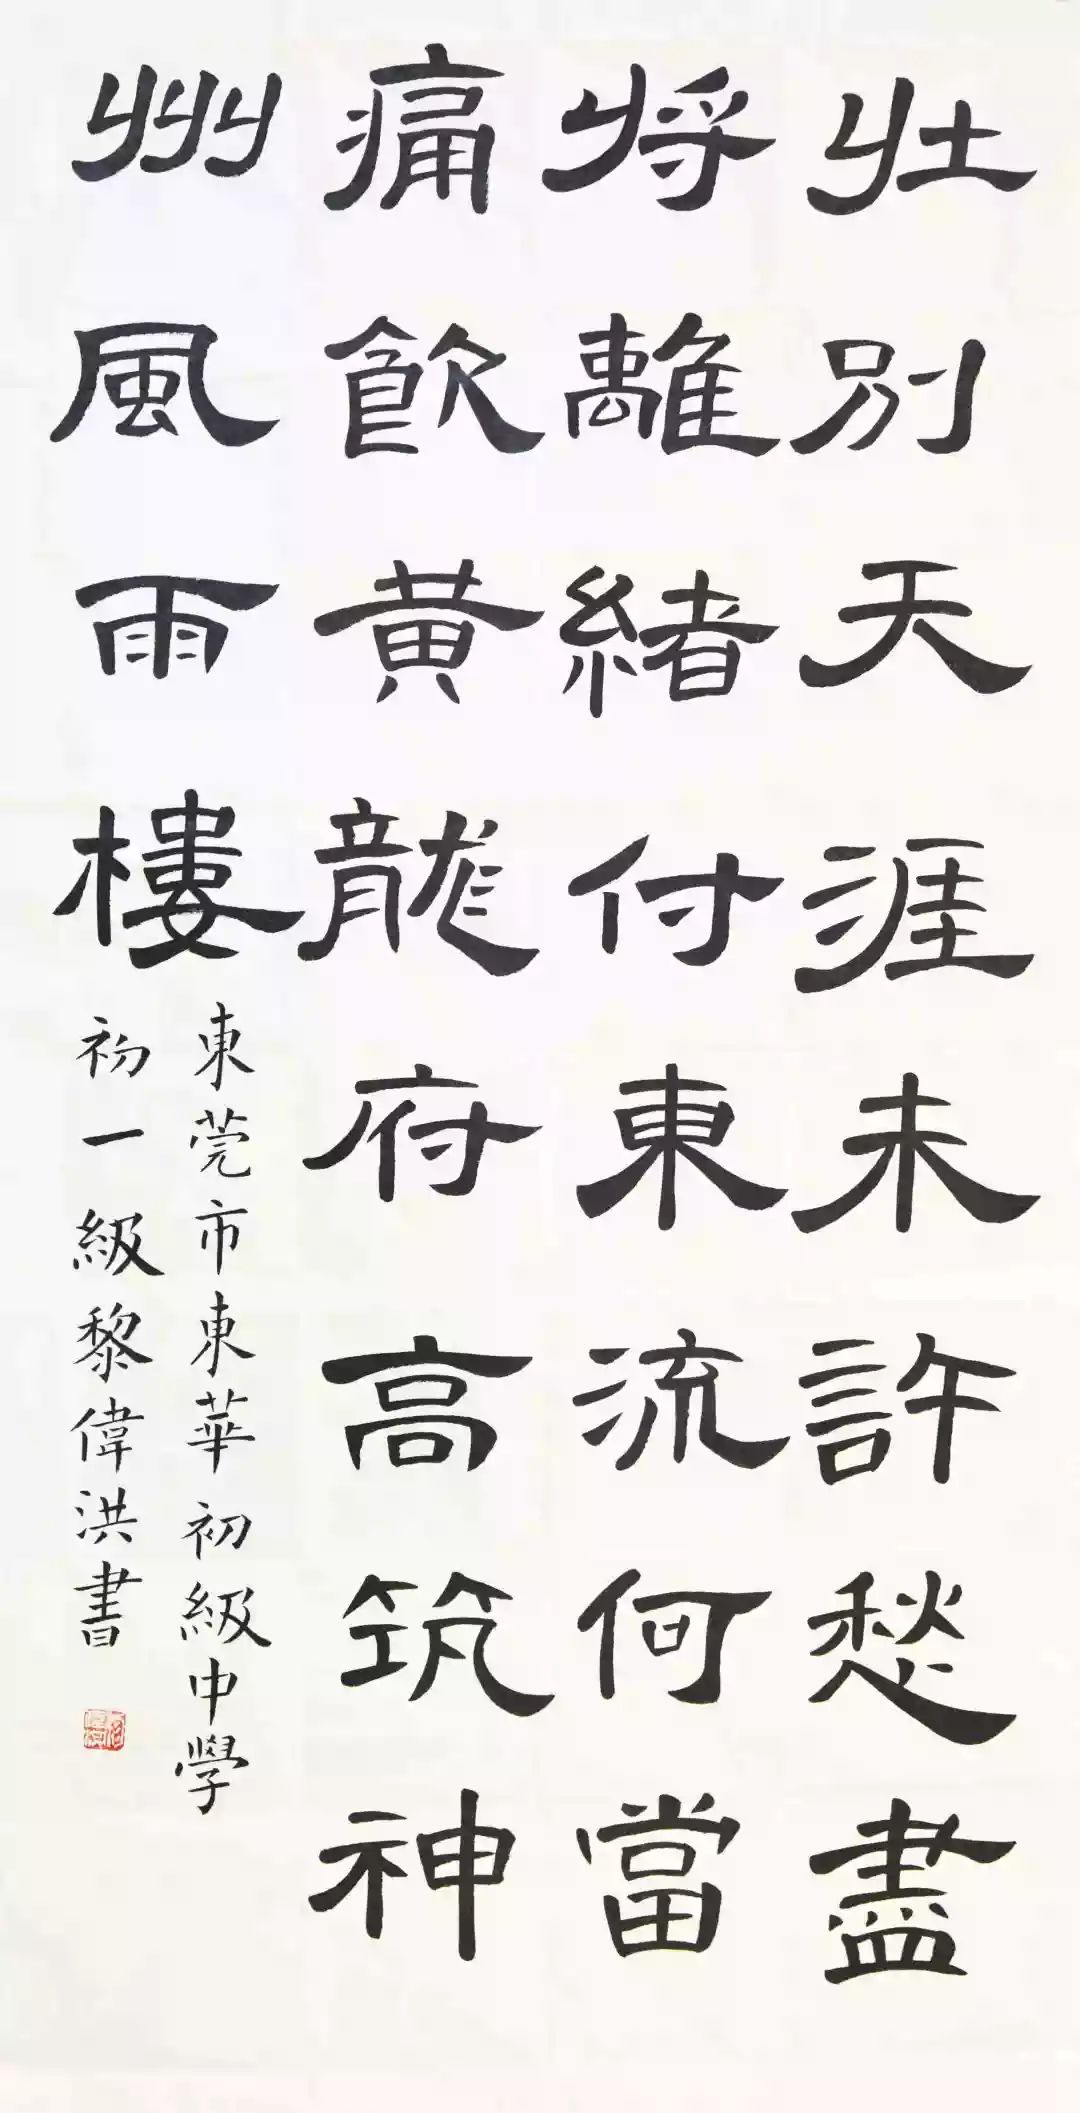 壯別天涯未許愁盡
將離緒付東流何當
痛飲黄龍府高筑神
州風雨樓
東莞市東華初級中學
初一級黎偉洪書